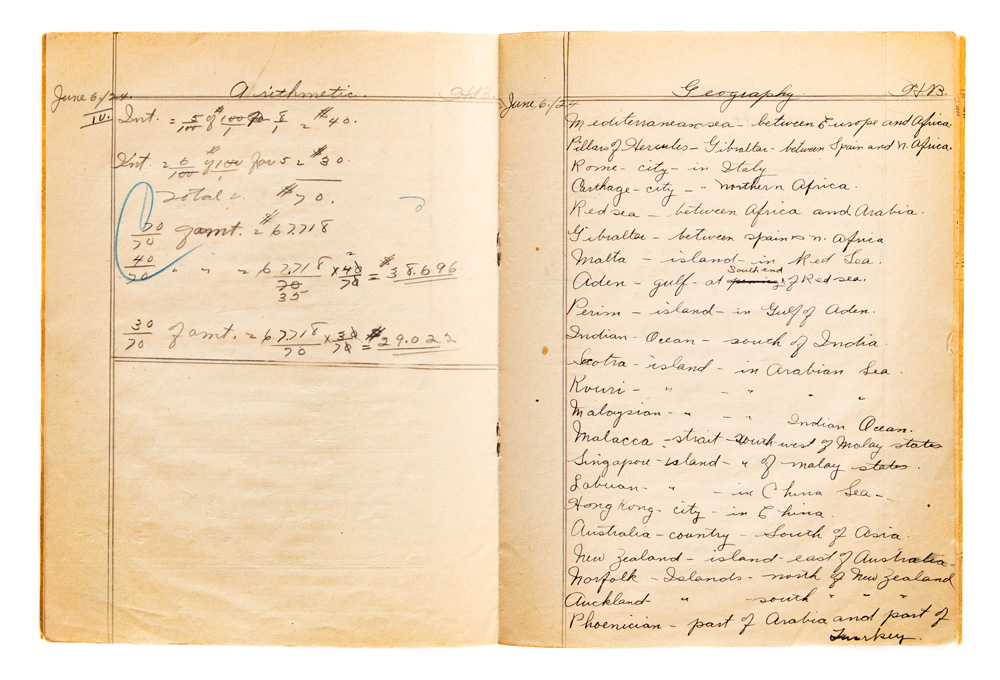 June 6/24. Arithmetic. H.B.
IV. Int. = 5/100 of $100/1 8/1 = $40.
Int. = 6/100 of $100/1 for 5 = $30.
Total = $70.
70/70 of amt. = $67.718
40/70 " " = 67.718/70 × 40/70 = $38.696
35
30/70 of amt. = 67.718/70 × 30/70 = $29.022
June 6/24 Geography. H.B.
Mediterranean sea - between Europe and Africa.
Pillar of Hercules - Gibraltar - between Spain and n. Africa.
Rome - city - in Italy
Carthage - city - " northern Africa.
Red sea - between Africa and Arabia.
Gibraltar - between spain & n. Africa
Malta - island - in Red Sea.
Aden - gulf - at South end of Red sea.
Perim - island - in Gulf of Aden.
Indian - Ocean - south of India.
Scotra - island - in Arabian Sea.
Kouri - " - " "
Malaysian - " - " Indian Ocean.
Malacca - strait - south west of Malay states
Singapore - island - " of malay states.
Labuan - " - in China Sea -
Hong Kong - city - in China.
Australia - country - South of Asia.
New Zealand - island - east of Australia -
Norfolk - Islands - north of New Zealand
Auckland - " - south " " "
Phoenician - part of Arabia and part of
Turkey.